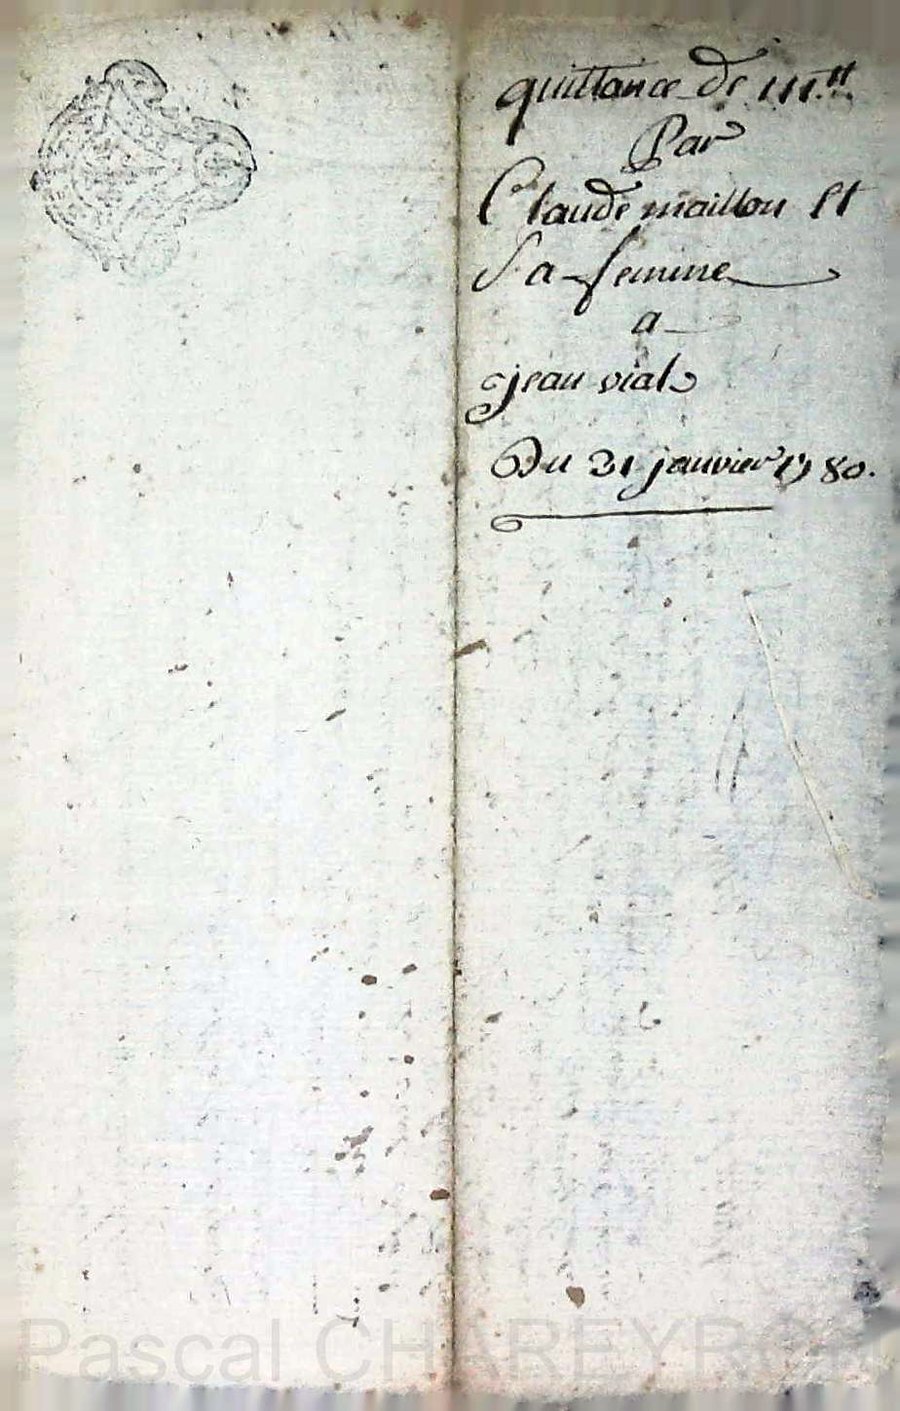 quittance de 111.tt
Par
Claude maillon et
Sa femme
a
jean vial
Du 31 janvier 1780.
Pascal CHAREYRON